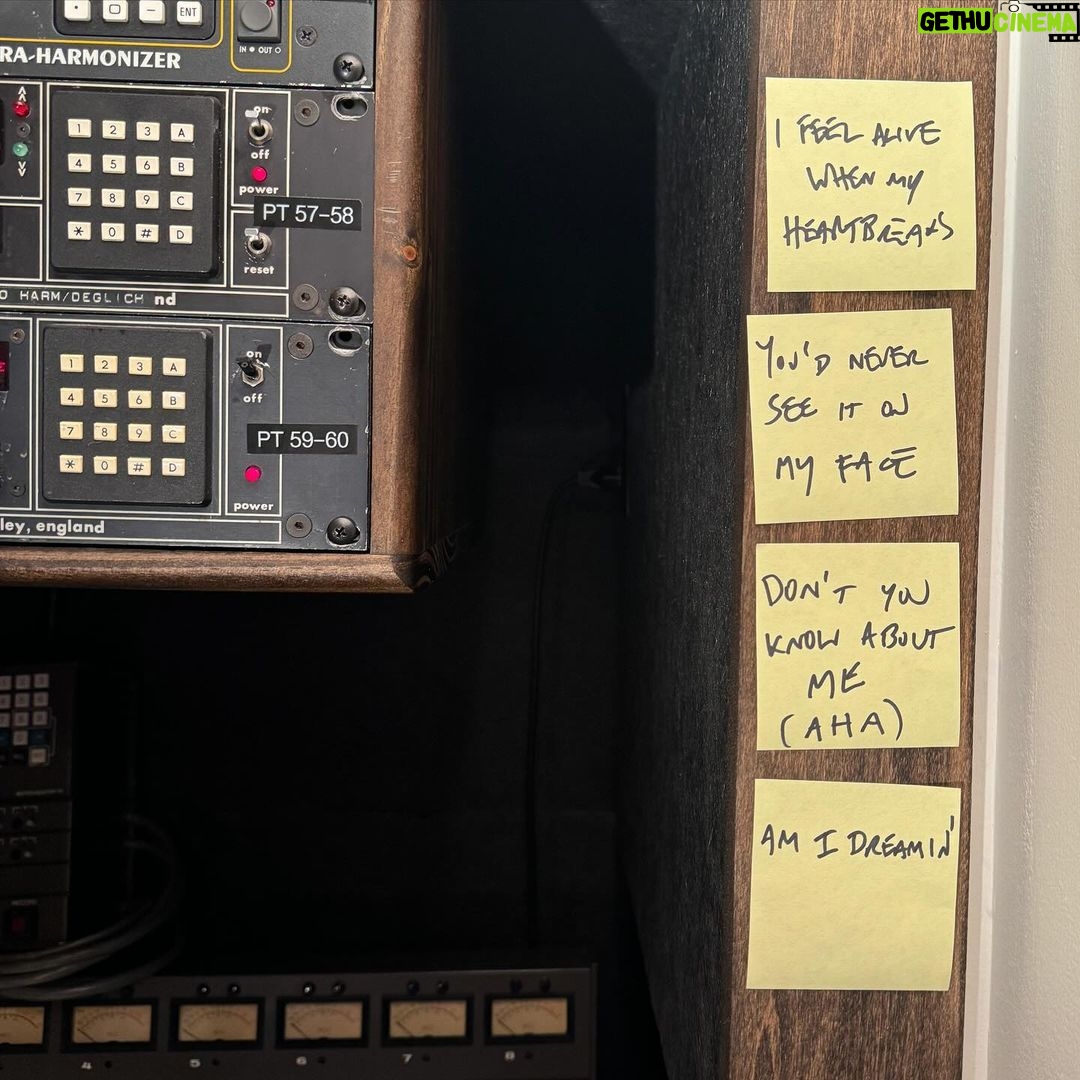 GETHUCINEMA
ENT
IN OUT
RA-HARMONIZER
1 2 3 A
4 5 6 B
7 8 9 C
* 0 # D
on
off
power
PT 57-58
reset
O HARM/DEGLICH nd
1 2 3 A
4 5 6 B
7 8 9 C
* 0 # D
on
off
PT 59-60
power
ley, england
4 5 6 7 8
I FEEL ALIVE
WHEN MY
HEARTBREAKS
YOU'D NEVER
SEE IT ON
MY FACE
DON'T YOU
KNOW ABOUT
ME
(AHA)
AM I DREAMIN'